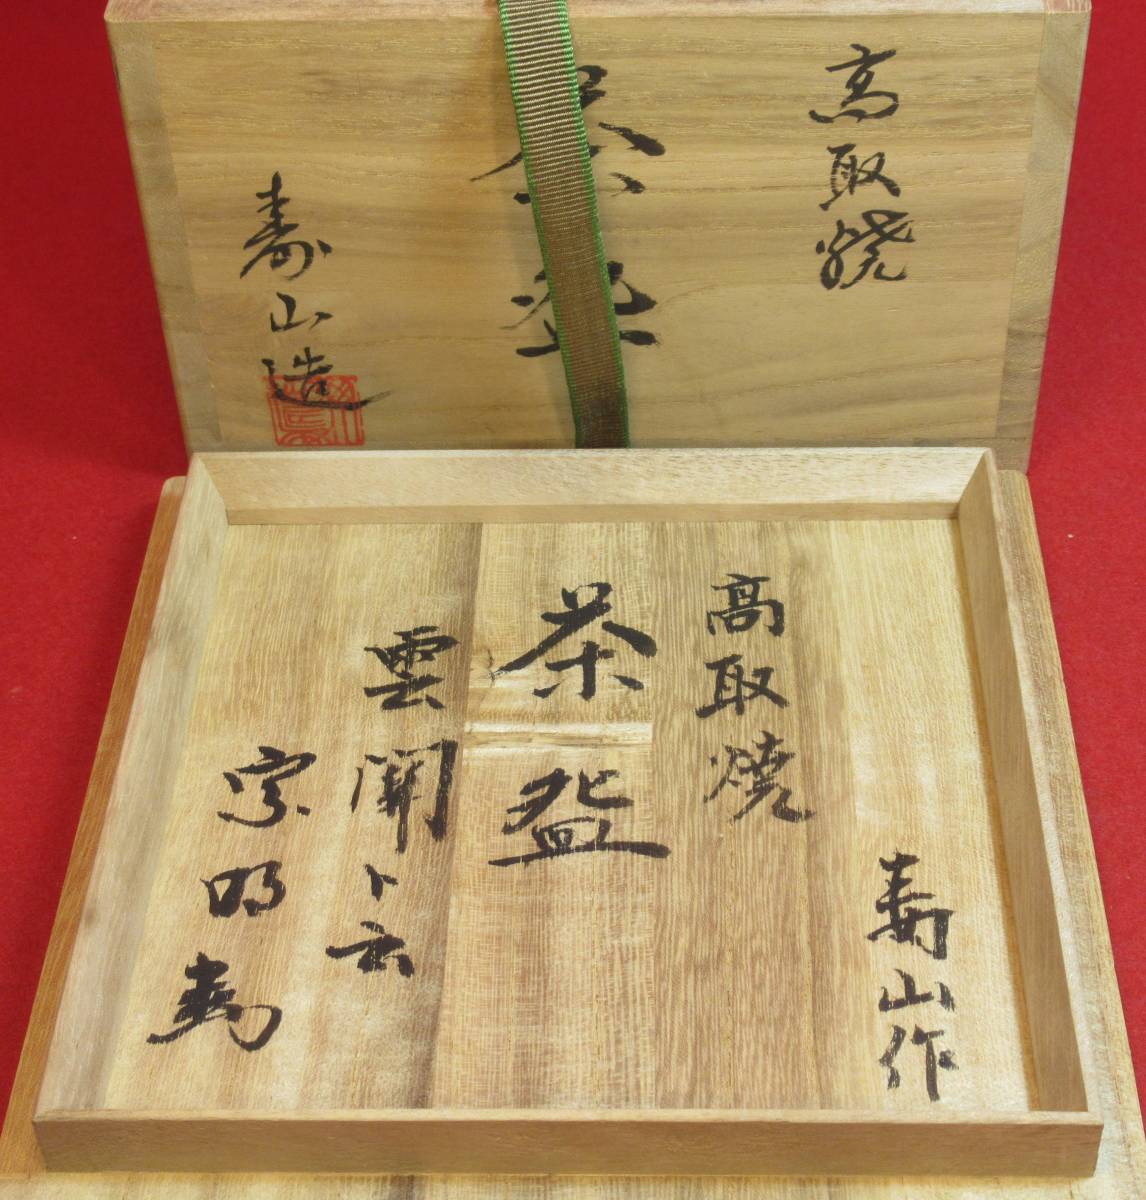 高取焼
茶盌
寿山造
寿山作
高取焼
茶盌
雲開ト云
宗明